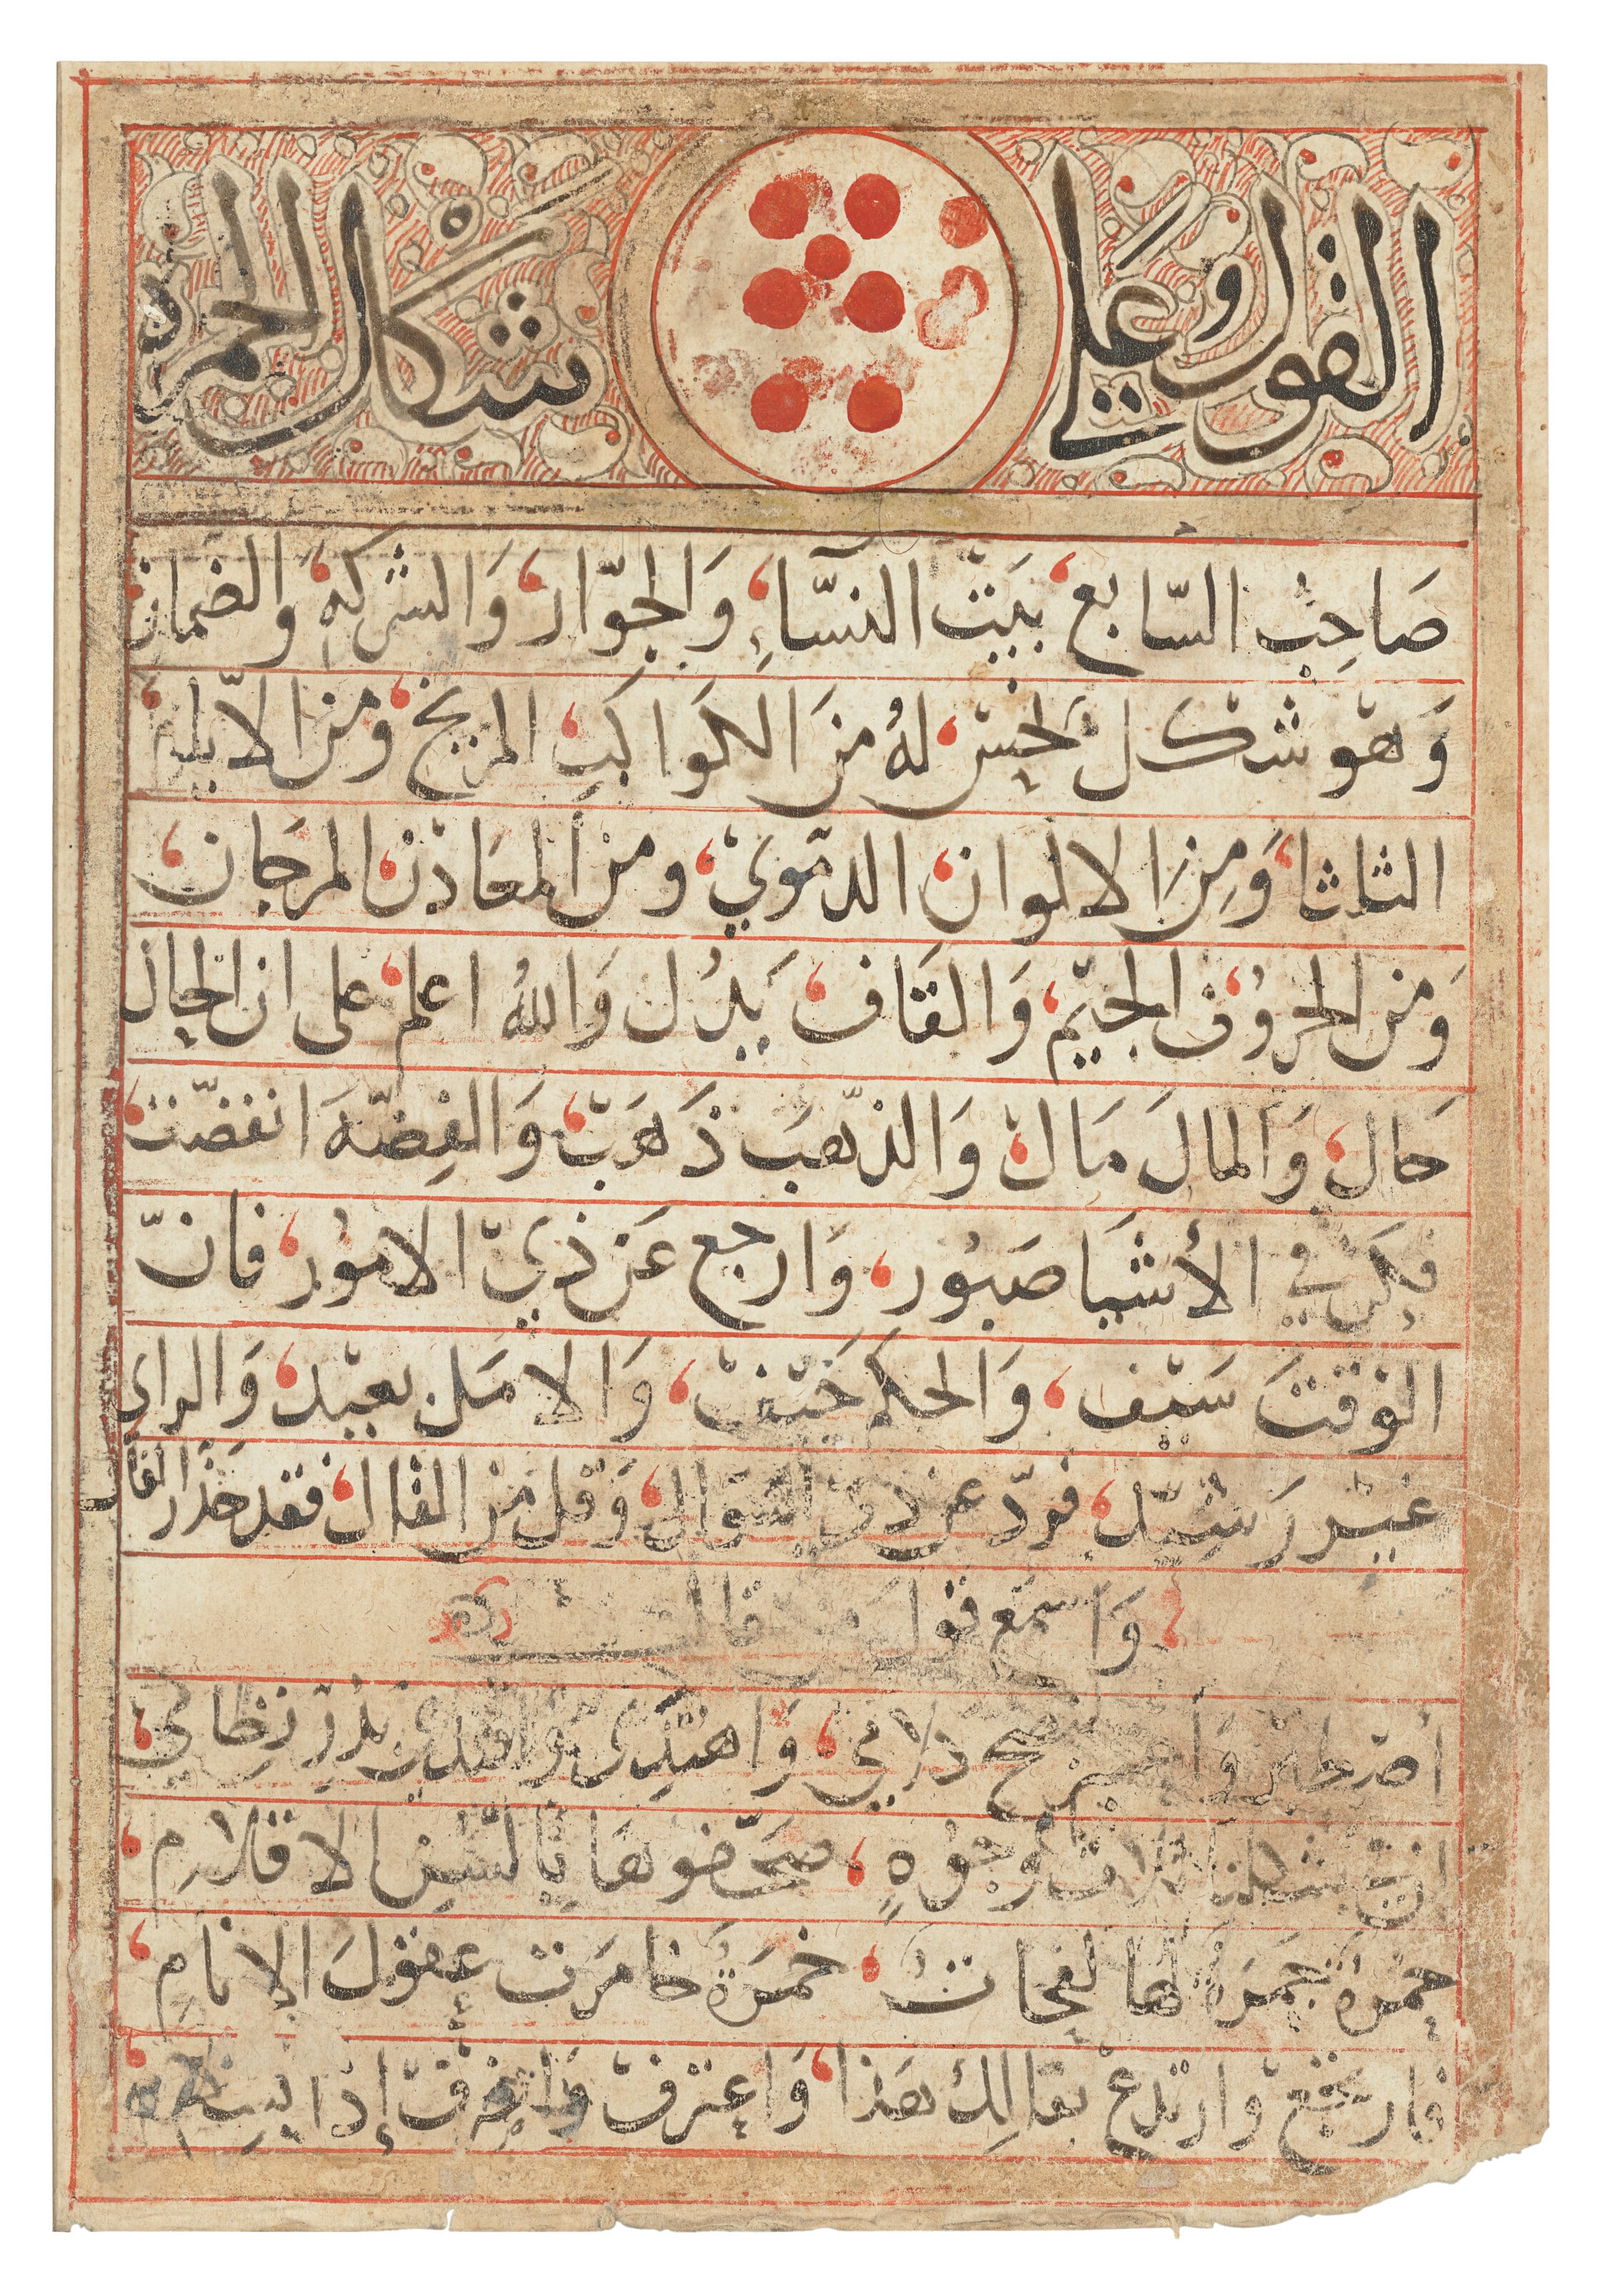 القول على شكل الحمره
صَاحِبُ السّابع بَيتْ النسَّآءِ وَالجوّار وَالشركهِ والضمان
وَهْو شكل نحِسْ لهُ منَ الكَواكبِ المريخ ومن الايّام
الثلاثا وَمِنَ الالوان الدمَويْ ومن المعَادنْ المرجَان
وَمن الحروُف الجيْم وَالقَاف يَدُل وَاللهُ اعلم على ان الحال
حَال وَالمالَ مَالْ وَالذّهبَ ذَهَبْ وَالفِضّهَ انفضّت
فكن في الأشيَا صَبُور وَارجع عَن ذيْ الامُور فانّ
الوقتَ سَيْف وَالحكم حَيْف وَالامَل بعيْد وَالراي
غيْر رَشِيْد فردّ عن ذي السّوال وَقل منَ القال فقد حذر الفال
وَاسمَع قول من قال
نصح كلامي وَاهتدى وَاقتدي بدُرْ نِظامي
انّ شكلنا ثلاث وجُوهٍ بالسُن الاقلام
حمْرة جمَرة لها لفحاتُ خمَرة خامَرت عقوْلَ الانامِ
فارتجع وارتدع بقالك هَذا وَاعترف وَاغترفْ إذا